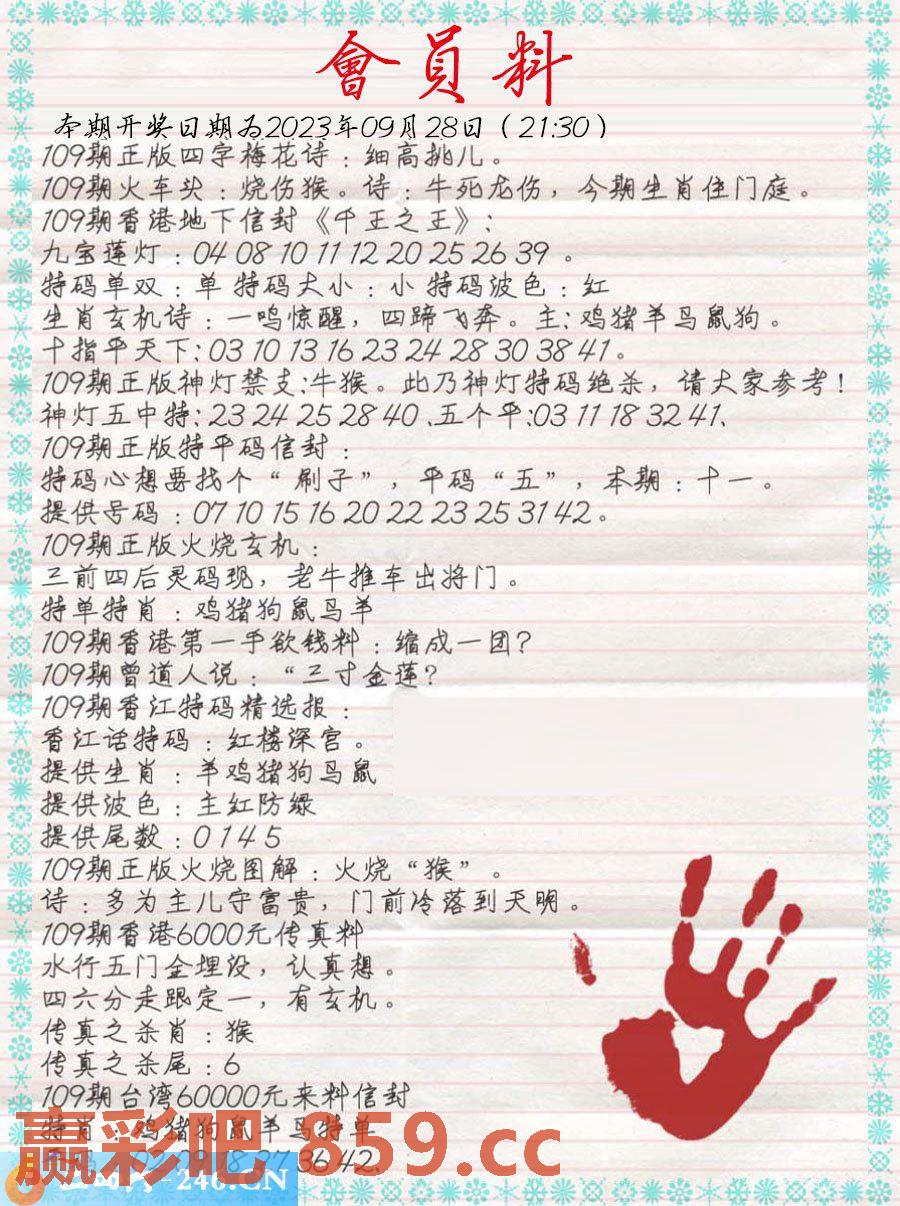 會員料
本期开奖日期为2023年09月28日（21:30）
109期正版四字梅花诗：细高挑儿。
109期火车头：烧伤猴。诗：牛死龙伤，今期生肖住门庭。
109期香港地下信封《千王之王》：
九宝莲灯：04 08 10 11 12 20 25 26 39 。
特码单双：单 特码大小：小 特码波色：红
生肖玄机诗：一鸣惊醒，四蹄飞奔。主：鸡猪羊马鼠狗。
十指平天下：03 10 13 16 23 24 28 30 38 41。
109期正版神灯禁支：牛猴。此乃神灯特码绝杀，请大家参考！
神灯五中特：23 24 25 28 40 、五个平：03 11 18 32 41、
109期正版特平码信封：
特码心想要找个“ 刷子”，平码“五”，本期：十一。
提供号码：07 10 15 16 20 22 23 25 31 42。
109期正版火烧玄机：
三前四后灵码现，老牛推车出将门。
特单特肖：鸡猪狗鼠马羊
109期香港第一手欲钱料：缩成一团？
109期曾道人说：“三寸金莲？
109期香江特码精选报：
香江话特码：红楼深宫。
提供生肖：羊鸡猪狗马鼠
提供波色：主红防绿
提供尾数：0 1 4 5
109期正版火烧图解：火烧“猴”。
诗：多为主儿守富贵，门前冷落到天明。
109期香港6000元传真料
水行五门金埋没，认真想。
四六分走跟定一，有玄机。
传真之杀肖：猴
传真之杀尾：6
109期台湾60000元来料信封
特肖：鸡猪狗鼠羊马特单
02 09 18 27 36 42、
赢彩吧.859.cc
246.CN